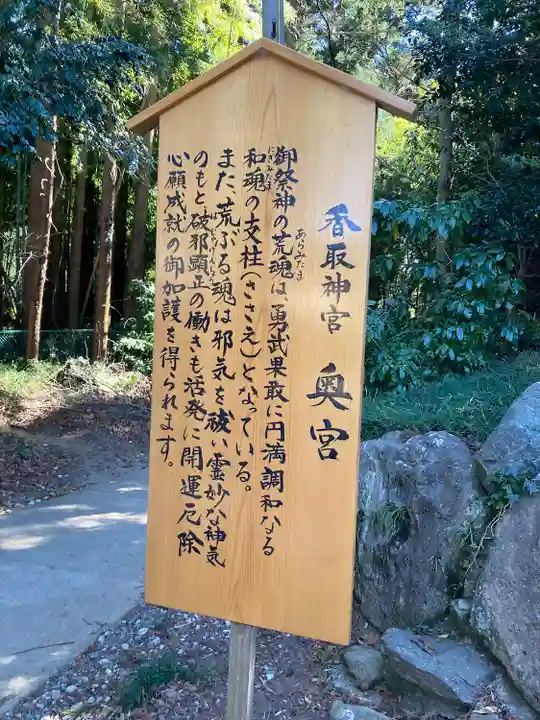 香取神宮 奥宮
御祭神の荒魂は、勇武果敢に円満調和なる
あらみたま
和魂の支柱(ささえ)となっている。
にきみたま
また、荒ぶる魂は邪気を祓い霊妙な神気
のもと破邪顕正の働きも活発に開運厄除
はじゃけんせい
心願成就の御加護を得られます。